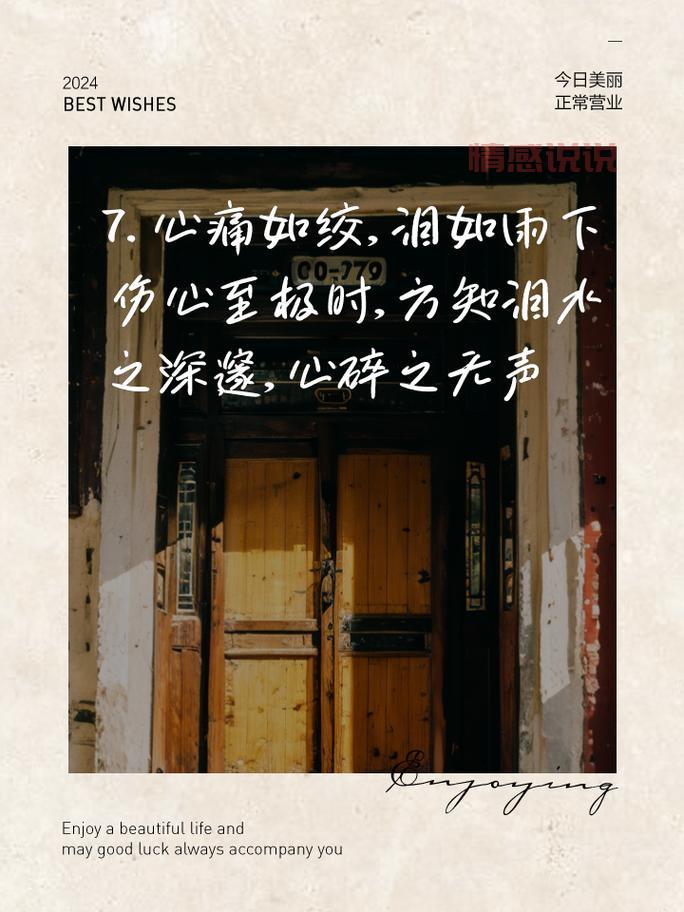 2024
BEST WISHES
今日美丽
正常营业
情感说说
7. 心痛如绞,泪如雨下
伤心至极时,方知泪水
之深邃,心碎之无声
00-779
Enjoying
Enjoy a beautiful life and
may good luck always accompany you